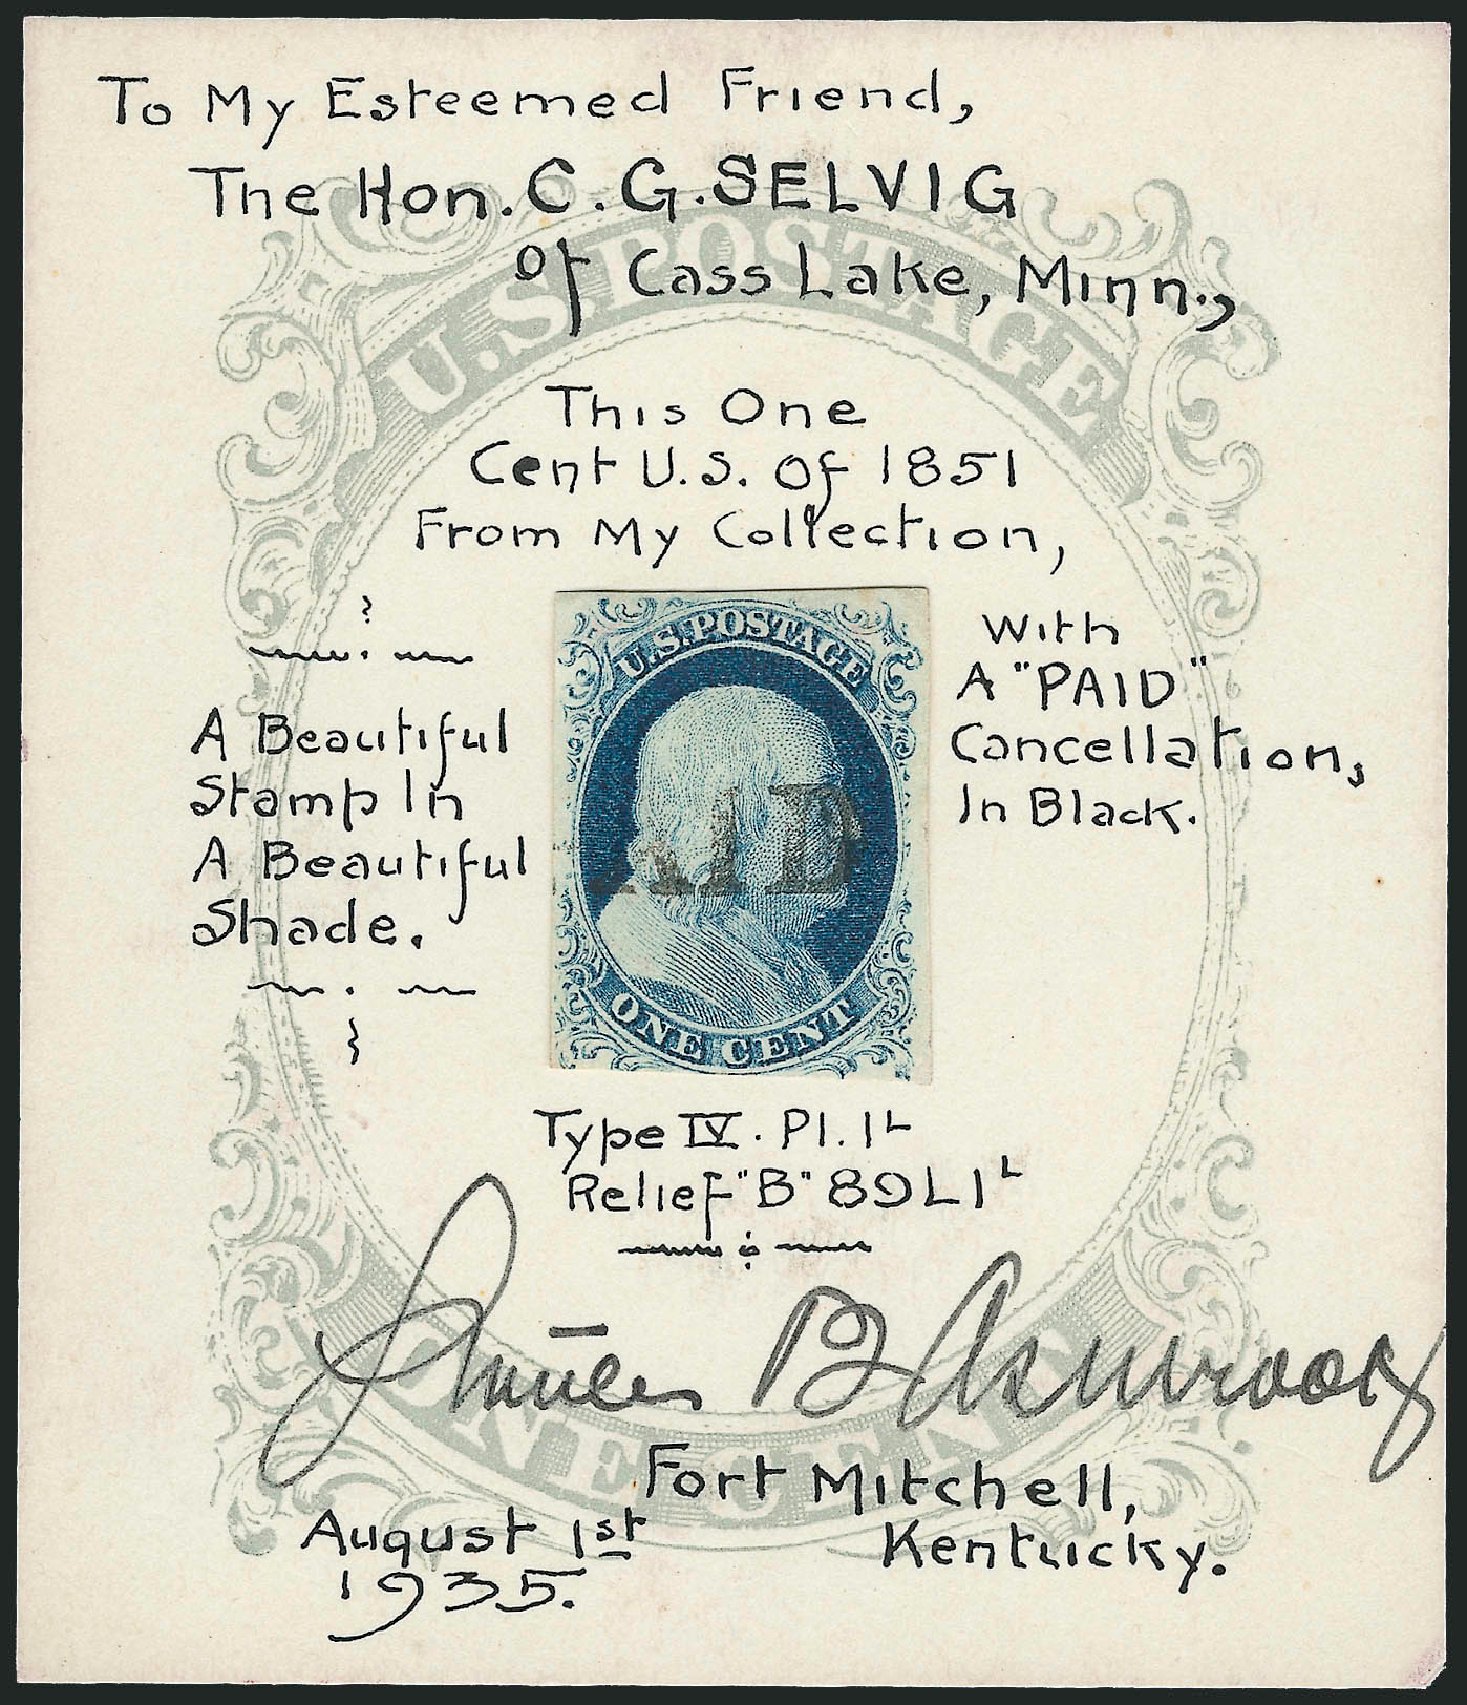 To My Esteemed Friend,
The Hon. C. G. SELVIG
of Cass Lake, Minn.,
U.S. POSTAGE
This One
Cent U.S. Of 1851
From My Collection,
A Beautiful
Stamp In
A Beautiful
Shade.
U.S. POSTAGE
AID
ONE CENT
With
A "PAID"
Cancellation,
In Black.
Type IV. Pl. 1L
Relief "B" 89L1L
Stanley B Ashbrook
ONE CENT
Fort Mitchell,
Kentucky.
August 1st
1935.